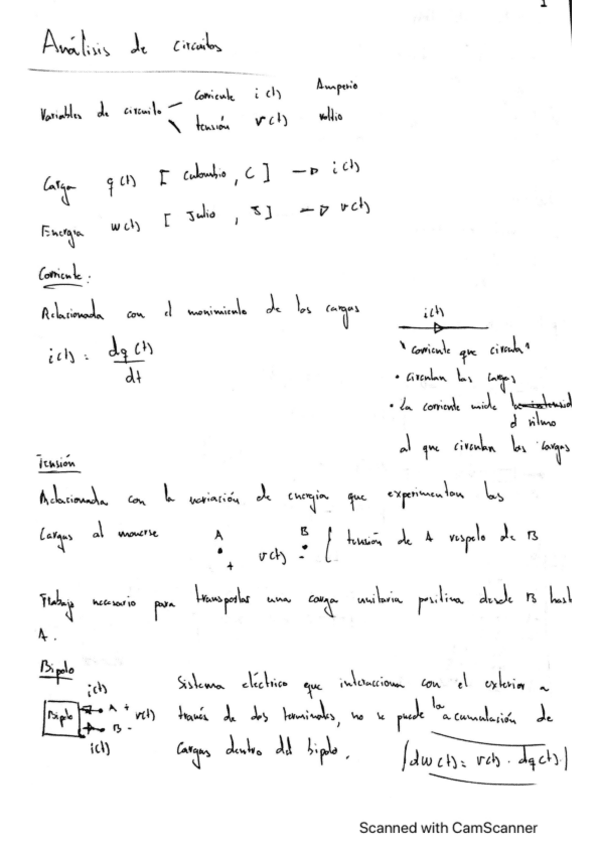 1
Análisis de circuitos
Variables de circuito
corriente i(t) Amperio
tensión v(t) voltio
Carga q(t) [culombio, C] → i(t)
Energia w(t) [Julio, J] → v(t)
Corriente:
Relacionada con el movimiento de las cargas
i(t) = dq(t)/dt
i(t)
"corriente que circula"
• circulan las cargas
• La corriente mide la intensid
el ritmo
al que circulan las cargas
Tensión
Relacionada con la variación de energia que experimentan las
Cargas al moverse
A + v(t) B - tensión de A respeto de B
Trabajo necesario para transportar una carga unitaria positiva desde B hast
A.
Bipolo
i(t)
Bipolo A + v(t)
B -
i(t)
Sistema eléctrico que interacciona con el exterior a
través de dos terminales, no se puede la acumulación de
Cargas dentro del bipolo.
dw(t) = v(t) · dq(t)
Scanned with CamScanner